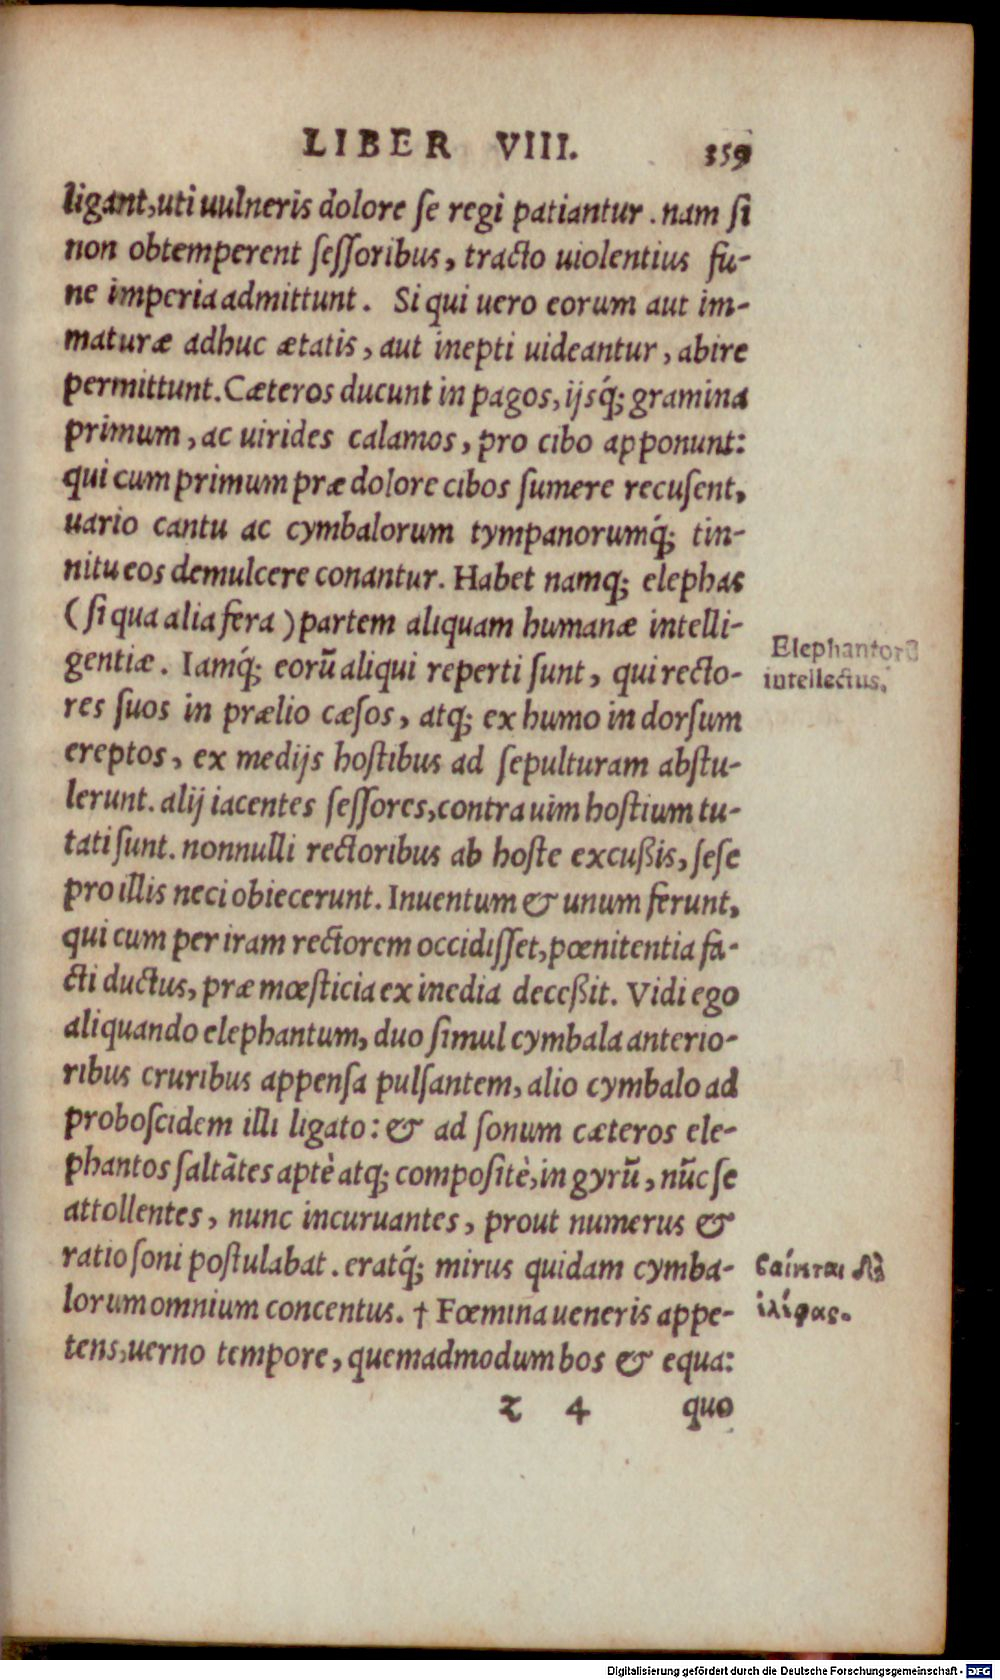 LIBER VIII. 359
ligant, uti uulneris dolore se regi patiantur. nam si
non obtemperent sessoribus, tracto uiolentius fu-
ne imperia admittunt. Si qui uero eorum aut im-
maturæ adhuc ætatis, aut inepti uideantur, abire
permittunt. Cæteros ducunt in pagos, ijsq́; gramina
primum, ac uirides calamos, pro cibo apponunt:
qui cum primum præ dolore cibos sumere recusent,
uario cantu ac cymbalorum tympanorumq́; tin-
nitu eos demulcere conantur. Habet namq; elephas
(si qua alia fera) partem aliquam humanæ intelli-
gentiæ. Iamq́; eorũ aliqui reperti sunt, qui recto-
res suos in prælio cæsos, atq; ex humo in dorsum
ereptos, ex medijs hostibus ad sepulturam abstu-
lerunt. alij iacentes sessores, contra uim hostium tu-
tati sunt. nonnulli rectoribus ab hoste excußis, sese
pro illis neci obiecerunt. Inuentum & unum ferunt,
qui cum per iram rectorem occidisset, pœnitentia fa-
cti ductus, præ mœsticia ex inedia deceßit. Vidi ego
aliquando elephantum, duo simul cymbala anterio-
ribus cruribus appensa pulsantem, alio cymbalo ad
proboscidem illi ligato: & ad sonum cæteros ele-
phantos saltãtes aptè atq; compositè, in gyrũ, nũc se
attollentes, nunc incuruantes, prout numerus &
ratio soni postulabat. eratq́; mirus quidam cymba-
lorum omnium concentus. † Fœmina ueneris appe-
tens, uerno tempore, quemadmodum bos & equa:
z 4 quo
Elephantorũ
intellectus.
βαίνεται δὲ
ἐλέφας.
Digitalisierung gefördert durch die Deutsche Forschungsgemeinschaft - DFG